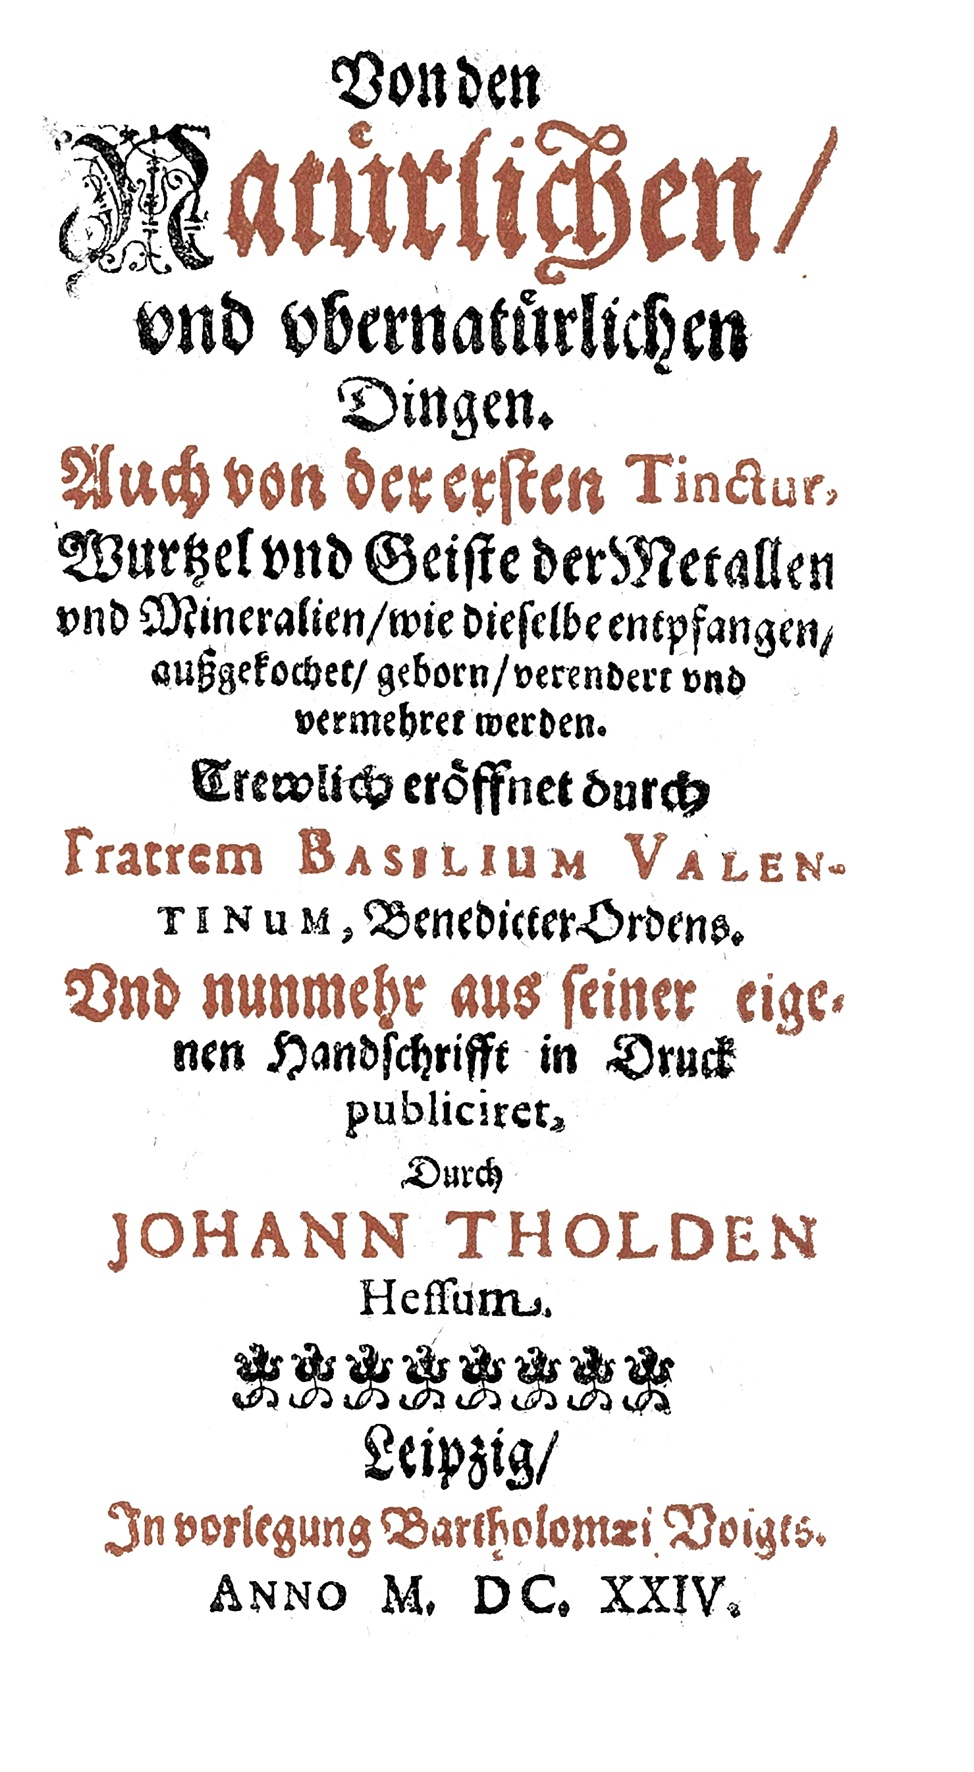 Von den
Natuͤrlichen/
vnd vbernatuͤrlichen
Dingen.
Auch von der ersten Tinctur,
Wurtzel vnd Geiste der Metallen
vnd Mineralien/wie dieselbe entpfangen/
außgekochet/ geborn/verendert vnd
vermehret werden.
Trewlich eroͤffnet durch
Fratrem BASILIUM VALEN-
TINUM, Benedicter Ordens.
Vnd nunmehr aus seiner eige-
nen Handschrifft in Druck
publiciret,
Durch
JOHANN THOLDEN
Hessum.
Leipzig/
In vorlegung Bartholomæi Voigts.
ANNO M. DC. XXIV.